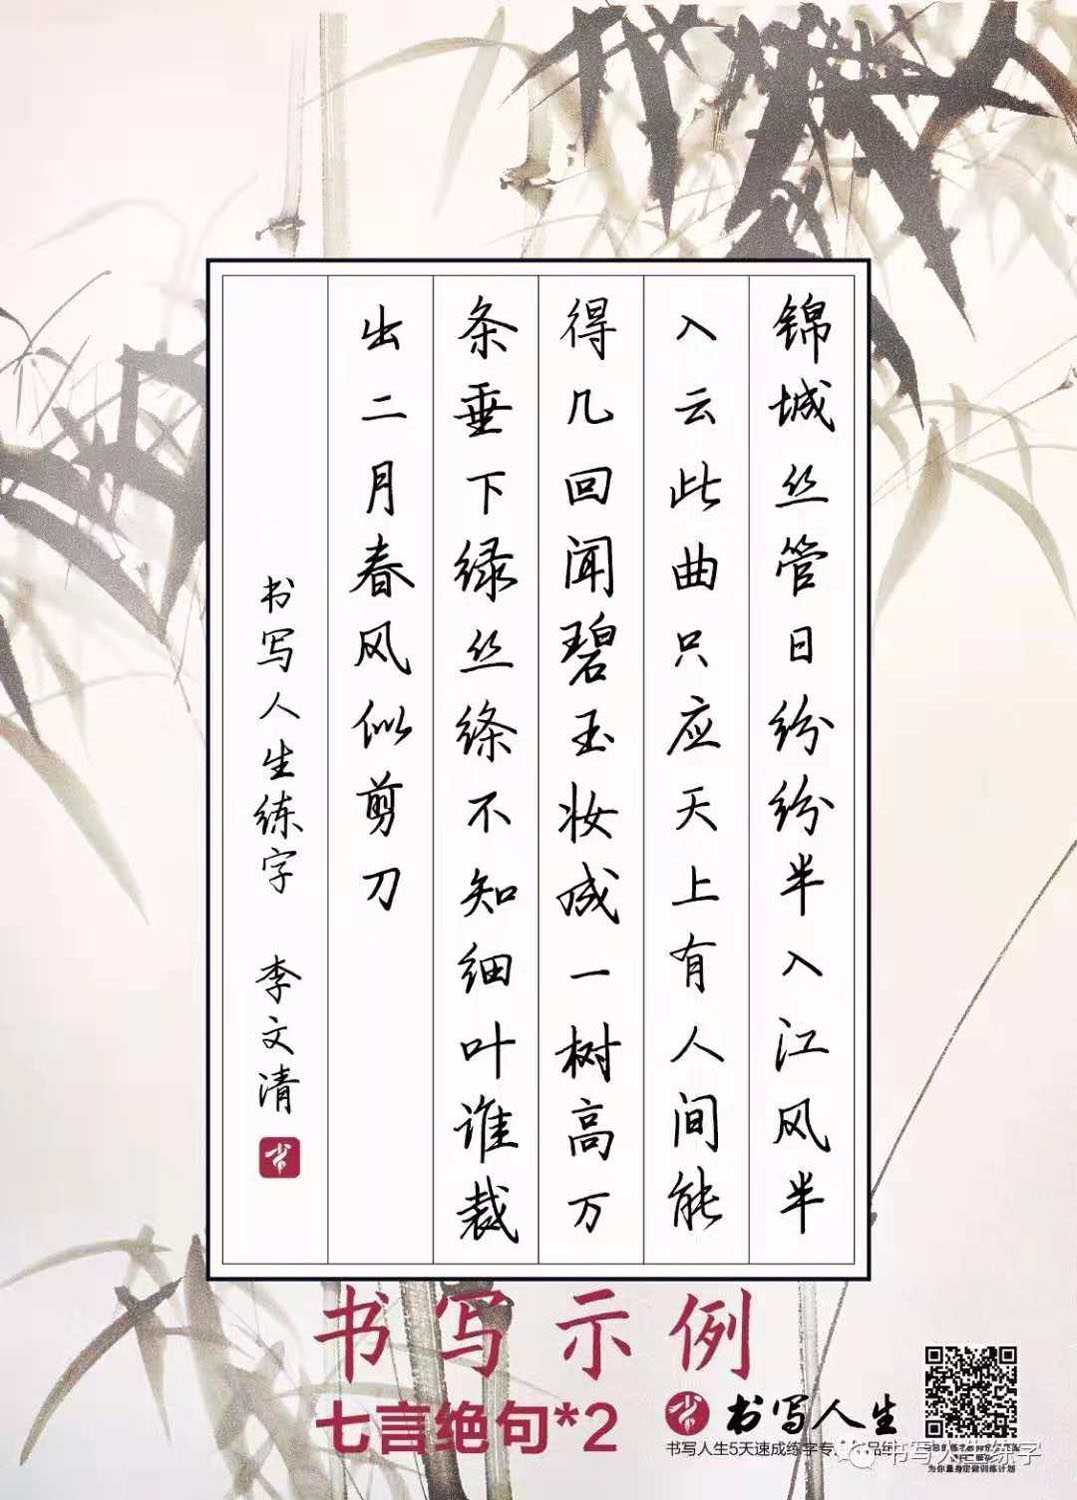 锦城丝管日纷纷半入江风半
入云此曲只应天上有人间能
得几回闻碧玉妆成一树高万
条垂下绿丝绦不知细叶谁裁
出二月春风似剪刀
书写人生练字 李文清
书
书写示例
七言绝句*2
书写人生
书写人生5天速成练字专
书写人生练字
为你量身定做训练计划